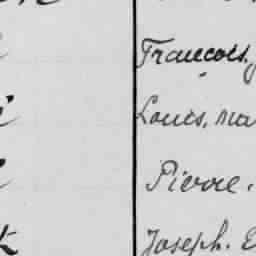 François,
Louis, ma
Pierre.
Joseph. E